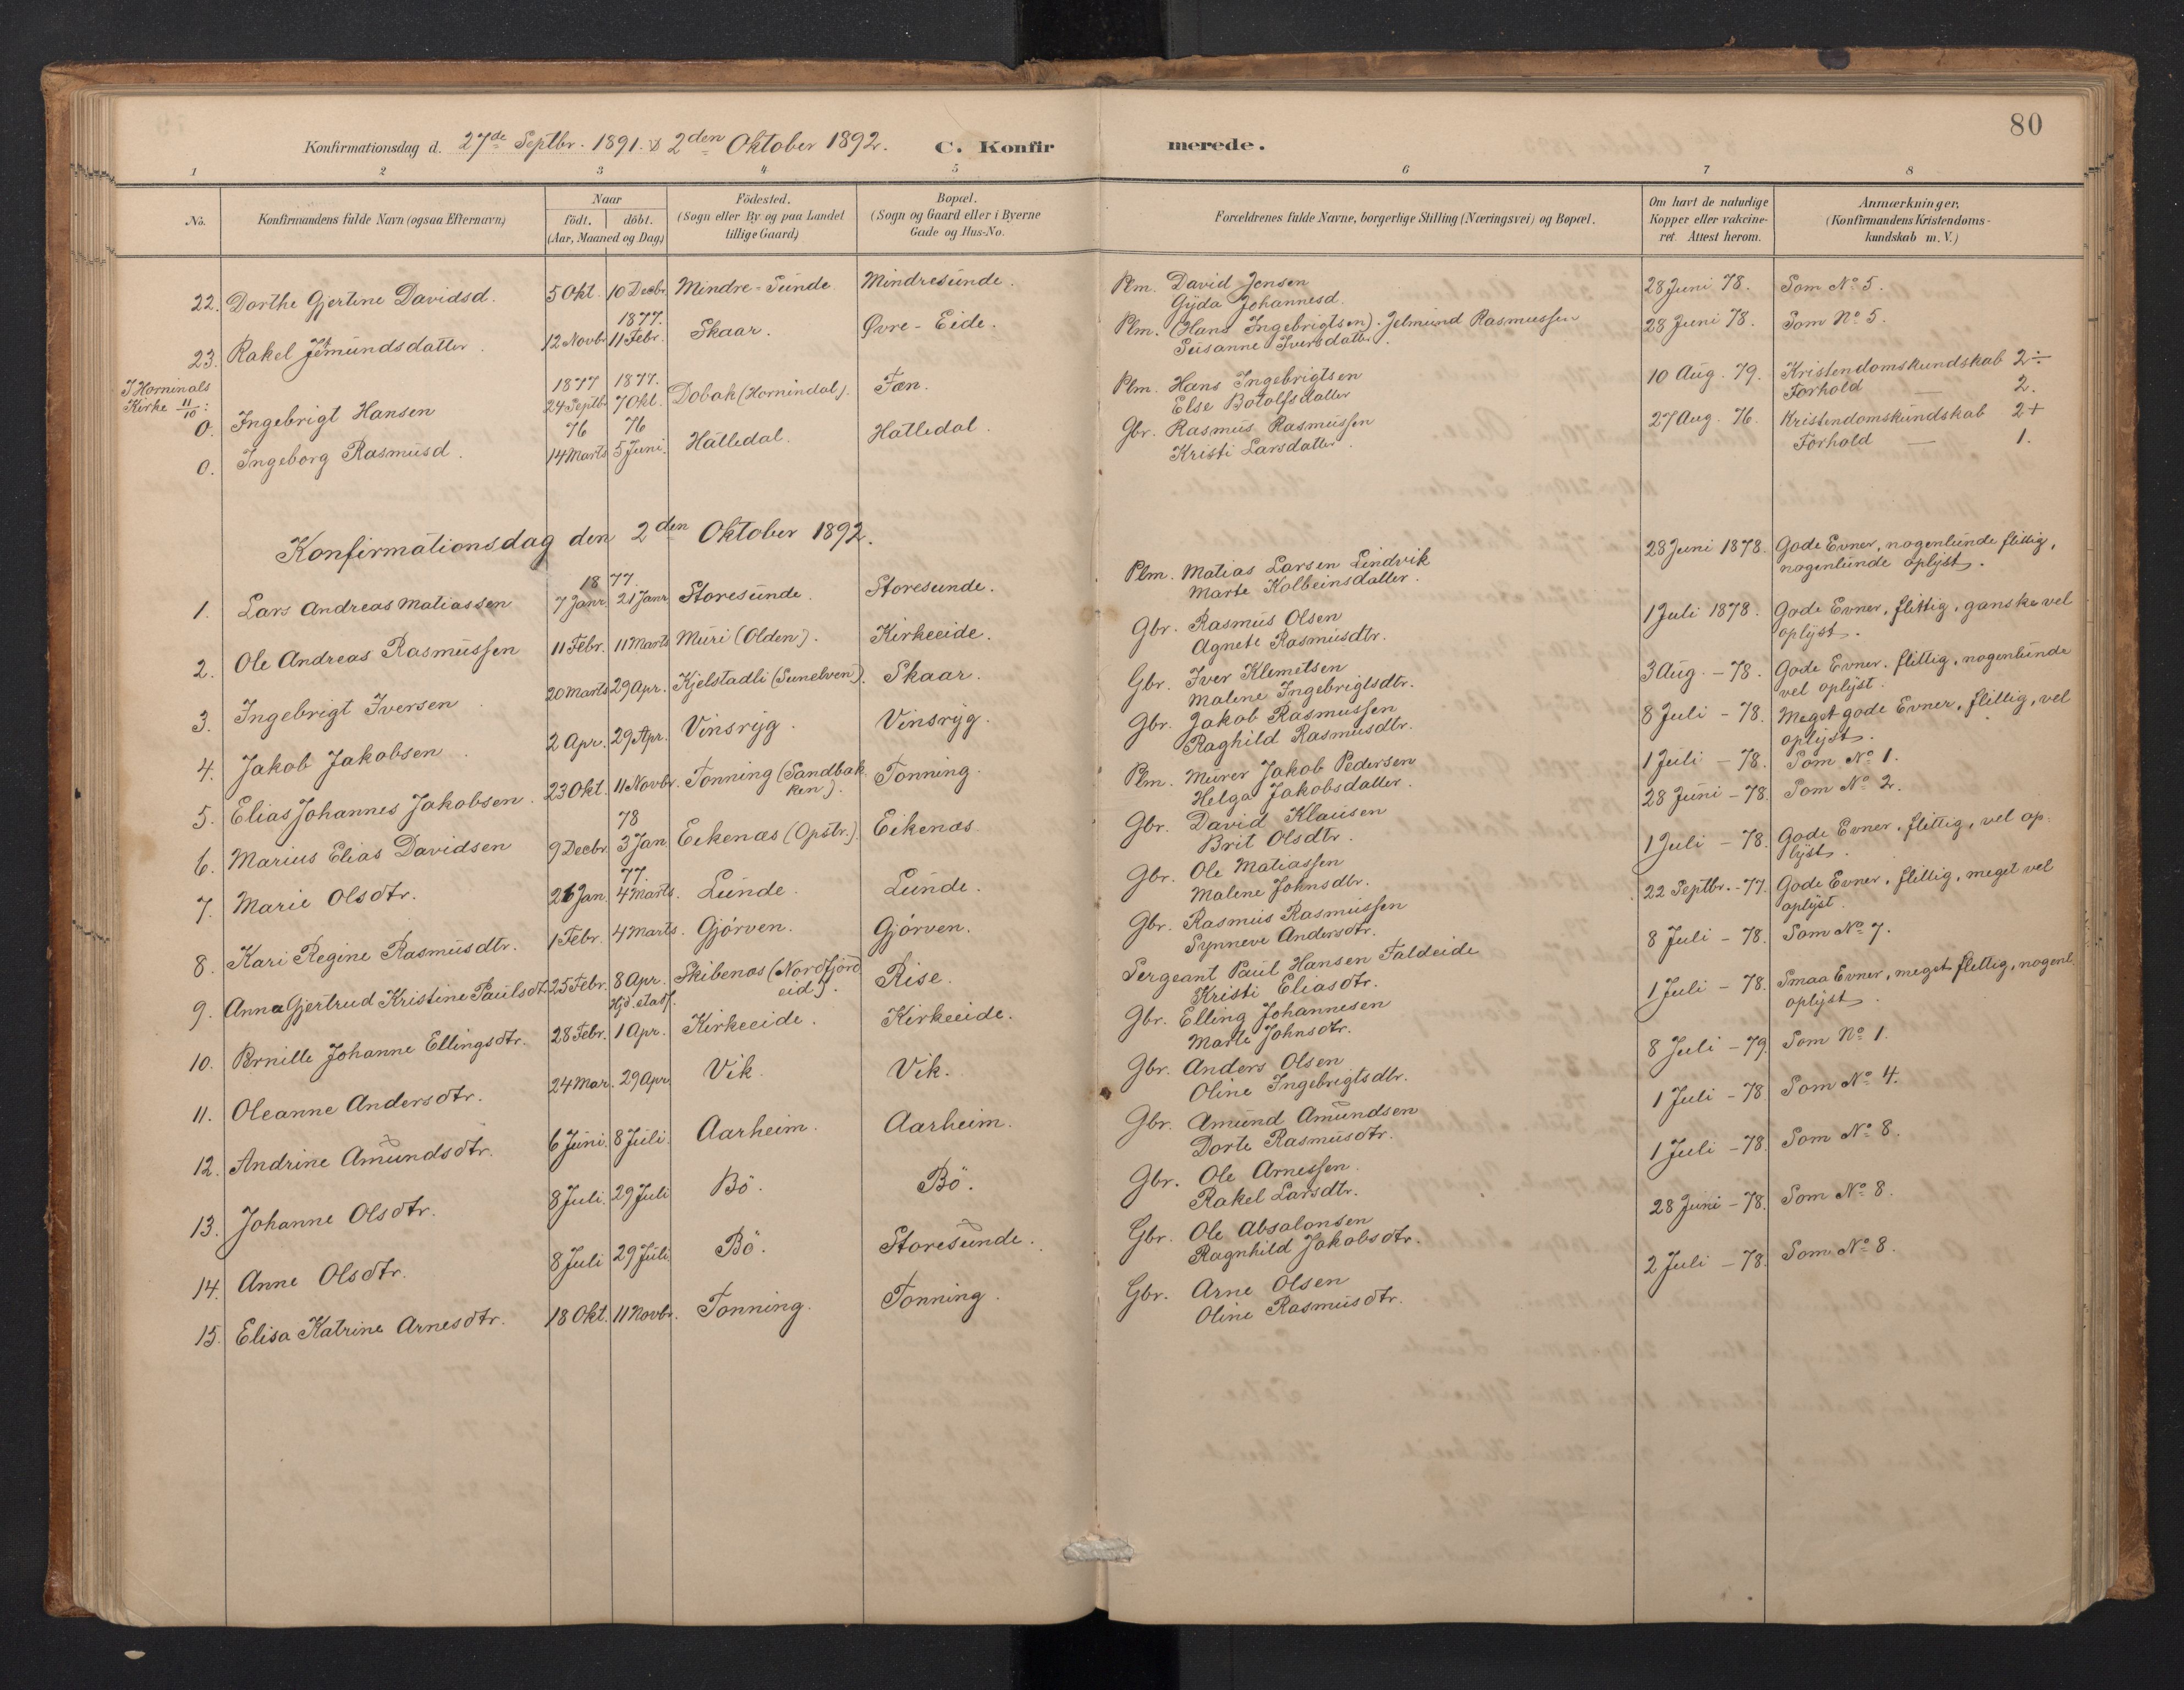 80
Konfirmationsdag d. 27de Septbr. 1891. & 2den Oktober 1892. C. Konfirmerede.
1 2 3 4 5 6 7 8
No. Konfirmandens fulde Navn (ogsaa Efternavn) Naar födt. döbt. (Aar, Maaned og Dag) Födested. (Sogn eller By og paa Landet tillige Gaard) Bopæl. (Sogn og Gaard eller i Byerne Gade og Hus-No. Forældrenes fulde Navne, borgerlige Stilling (Næringsvei) og Bopæl. Om havt de naturlige Kopper eller vakcineret. Attest herom. Anmærkninger, (Konfirmandens Kristendomskundskab m. V.)
22. Dorthe Gjertine Davidsd. 5 Okt. 10 Decbr. Mindre-Sunde Mindresunde. Plm. David Jensen 28 Juni 78. Som No 5.
Gyda Johannesd.
1877.
23. Rakel Jetmundsdatter. 12 Novbr. 11 Febr. Skaar. Øvre-Eide. Plm. (Hans Ingebrigtsen). Jelmund Rasmussen 28 Juni 78. Som No 5.
Susanne Iversdatter.
I Hornindals Kirke 11/10:
1877 1877.
0. Ingebrigt Hansen 24 Septbr. 7 Okt. Dobak (Hornindal). Fæn. Plm. Hans Ingebrigtsen 10 Aug. 79. Kristendomskundskab 2÷
Else Botolfsdatter Forhold — 2.
76 76
0. Ingeborg Rasmusd. 14 Marts 5 Juni. Hälledal. Hälledal. Gbr. Rasmus Rasmussen 27 Aug. 76. Kristendomskundskab 2+
Kristi Larsdatter. Forhold — 1.
Konfirmationsdag den 2den Oktober 1892.
1877.
1. Lars Andreas Matiassen 7 Janr. 21 Janr. Storesunde. Storesunde. Plm. Matias Larsen Lindvik 28 Juni 1878. Gode Evner, nogenlunde flittig,
Marte Kolbeinsdatter. nogenlunde oplyst.
2. Ole Andreas Rasmussen 11 Febr. 11 Marts Muri (Olden). Kirkeeide. Gbr. Rasmus Olsen 1 Juli 1878. Gode Evner, flittig, ganske vel
Agnete Rasmusdtr. oplyst.
3. Ingebrigt Iversen 20 Marts 29 Apr. Kjelstadli (Sunelven). Skaar. Gbr. Iver Klemetsen 3 Aug. - 78. Gode Evner, flittig, nogenlunde
Malene Ingebrigtsdtr. vel oplyst.
4. Jakob Jakobsen. 2 Apr. 29 Apr. Vinsryg. Vinsryg. Gbr. Jakob Rasmussen 8 Juli - 78. Meget gode Evner, flittig, vel
Raghild Rasmusdtr. oplyst.
5. Elias Johannes Jakobsen. 23 Okt. 11 Novbr. Tonning (Sandbakken). Tonning. Plm. Murer Jakob Pedersen 1 Juli - 78. Som No 1.
Helga Jakobsdatter.
78
6. Marius Elias Davidsen 9 Decbr. 3 Jan Eikenæs (Opstr.). Eikenæs. Gbr. David Klausen 28 Juni - 78. Som No 2.
Brit Olsdtr.
77.
7. Marie Olsdtr. 26 Jan. 4 Marts. Lunde. Lunde. Gbr. Ole Matiassen 1 Juli - 78. Gode Evner, flittig, vel oplyst.
Malene Johnsdtr.
8. Kari Regine Rasmusdtr. 1 Febr. 4 Marts. Gjörven. Gjörven. Gbr. Rasmus Rasmussen 22 Septbr. - 77. Gode Evner, flittig, meget vel
Synneve Andersdtr. oplyst.
9. Anna Gjertrud Kristine Paulsdtr. 25 Febr. 8 Apr. Skibenæs (Nordfjordeid). Rise. Sergeant Paul Hansen Faldeide 8 Juli - 78. Som No 7.
Kristi Eliasdtr.
10. Pernille Johanne Ellingsdtr. 28 Febr. 1 Apr. Kirkeeide. Kirkeeide. Gbr. Elling Johannesen 1 Juli - 78. Smaa Evner, meget flittig, nogenl.
Marte Johnsdtr. oplyst.
11. Oleanne Andersdtr. 24 Mar. 29 Apr. Vik. Vik. Gbr. Anders Olsen 8 Juli - 79. Som No 1.
Oline Ingebrigtsdtr.
12. Andrine Amundsdtr. 6 Juni. 8 Juli. Aarheim. Aarheim. Gbr. Amund Amundsen 1 Juli - 78. Som No 4.
Dorte Rasmusdtr.
13. Johanne Olsdtr. 8 Juli. 29 Juli Bö. Bö. Gbr. Ole Arnessen. 1 Juli - 78. Som No 8.
Rakel Larsdtr.
14. Anne Olsdtr. 8 Juli 29 Juli. Bö. Storesunde. Gbr. Ole Absalonsen 28 Juni - 78. Som No 8.
Ragnhild Jakobsdtr.
15. Elisa Katrine Arnesdtr. 18 Okt. 11 Novbr. Tonning. Tonning. Gbr. Arne Olsen 2 Juli - 78. Som No 8.
Oline Rasmusdtr.